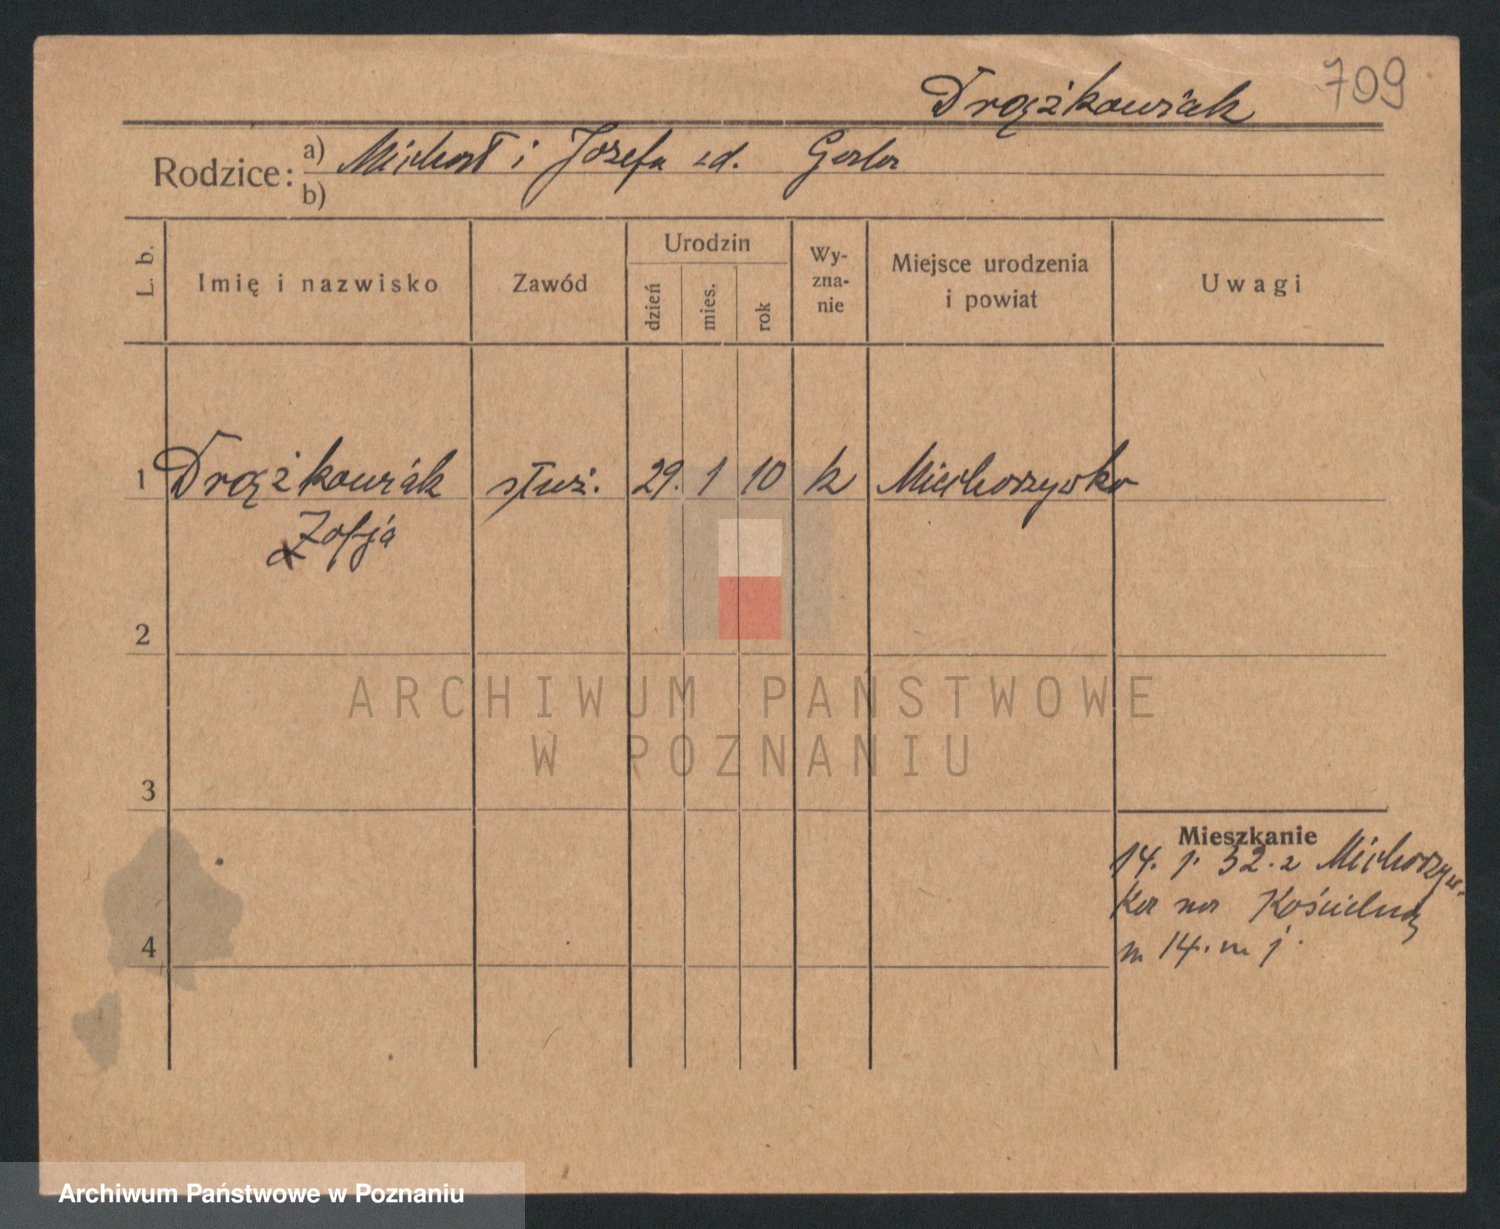 709
Drążkowiak
Rodzice: a) Michał i Józefa zd. Gala
b)
L. b. Imię i nazwisko Zawód Urodzin dzień mies. rok Wyznanie Miejsce urodzenia i powiat Uwagi
1 Drążkowiak służ. 29. 1 10 k Miechorzewko
Zofja
2
ARCHIWUM PAŃSTWOWE
W POZNANIU
3
Mieszkanie
14. 1. 32. z
4
ka na Kościelną
14. m 1.
Archiwum Państwowe w Poznaniu